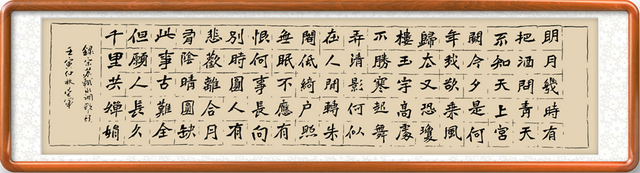 明月幾時有
把酒問青天
不知天上宮
闕今夕是何
年我欲乘風
歸去又恐瓊
樓玉宇高處
不勝寒起舞
弄清影何似
在人間轉朱
閣低綺户照
無眠不應有
恨何事長向
别時圓人有
悲歡離合月
有陰晴圓缺
此事古難全
但願人長久
千里共嬋娟
録宋蘇軾水调歌頭
壬寅仲秋